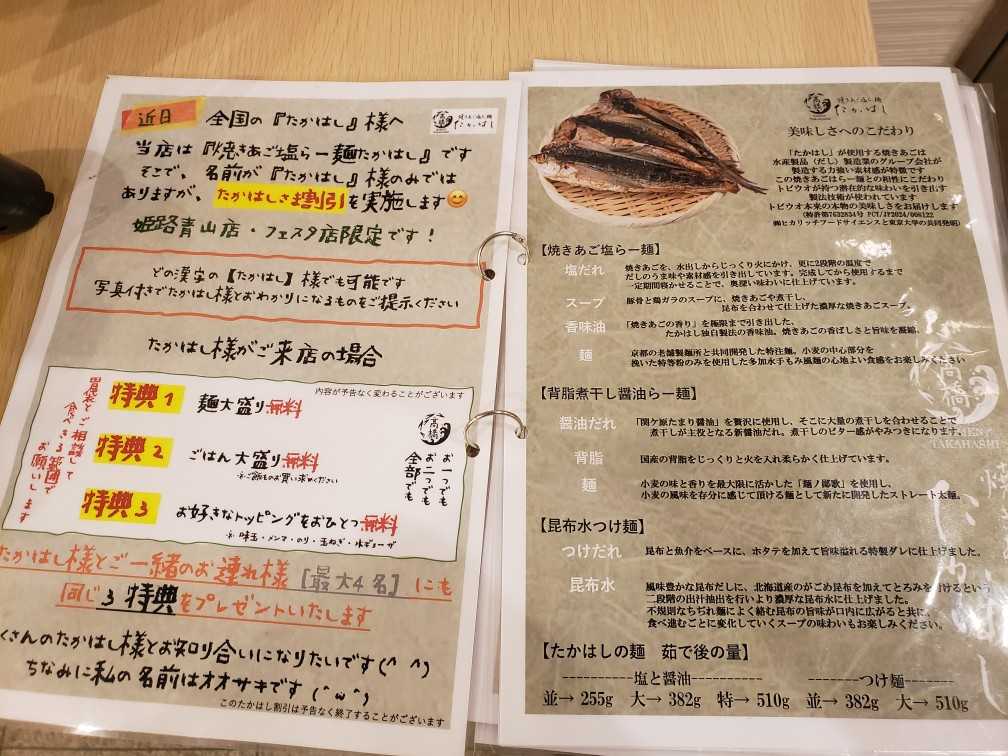 近日
全国の『たかはし』様へ
焼きあご塩らー麺
たかはし
当店は『焼きあご塩らー麺たかはし』です
そこで、名前が『たかはし』様のみでは
ありますが、たかはしさま割引を実施します😊
姫路青山店・フェスタ店限定です!
どの漢字の【たかはし】様でも可能です
写真付きでたかはし様とおわかりになるものをご提示ください
たかはし様がご来店の場合
内容が予告なく変わることがございます
特典1 麺大盛り無料
特典2 ごはん大盛り無料
※ご飯もののお買い求めください
特典3 お好きなトッピングをおひとつ無料
※味玉・メンマ・のり・玉ねぎ・水ギョーザ
胃袋とご相談して
食べきる範囲で
お願いします
高橋
お一つでも
お二つでも
全部でも
たかはし様とご一緒のお連れ様[最大4名]にも
同じ3特典をプレゼントいたします
くさんのたかはし様とお知り合いになりたいです(^ ^)
ちなみに私の名前はオオサキです(^ω^)
このたかはし割引は予告なく終了することがございます
焼きあご塩らー麺
たかはし
美味しさへのこだわり
「たかはし」が使用する焼きあごは
水産製品(だし)製造業のグループ会社が
製造する力強い素材感が特徴です
この焼きあごはらー麺との相性にこだわり
トビウオが持つ潜在的な味わいを引き出す
製法技術が使われています
トビウオ本来の本物の美味しさをお届けします
(特許第7632834号 PCT/JP2024/008122
㈱ヒカリッチフードサイエンスと東京大学の共同発明)
【焼きあご塩らー麺】
塩だれ 焼きあごを、水出しからじっくり火にかけ、更に2段階の温度で
だしのうま味や素材感を引き出しています。完成してから使用するまで
一定期間寝かせることで、奥深い味わいに仕上げています。
スープ 豚骨と鶏ガラのスープに、焼きあごや煮干し、
昆布を合わせて仕上げた濃厚な焼きあごスープ。
香味油 「焼きあごの香り」を極限まで引き出した、
たかはし独自製法の香味油。焼きあごの香ばしさと旨味を凝縮。
麺 京都の老舗製麺所と共同開発した特注麺。小麦の中心部分を
挽いた特等粉のみを使用した多加水手もみ風麺の心地よい食感をお楽しみください
【背脂煮干し醤油らー麺】
醤油だれ 「関ケ原たまり醤油」を贅沢に使用し、そこに大量の煮干しを合わせることで
煮干しが主役となる新醤油だれ。煮干しのビター感がやみつきになります。
背脂 国産の背脂をじっくりと火を入れ柔らかく仕上げています。
麺 小麦の味と香りを最大限に活かした「麺ノ郷歌」を使用し、
小麦の風味を存分に感じて頂ける麺として新たに開発したストレート太麺。
【昆布水つけ麺】
つけだれ 昆布と魚介をベースに、ホタテを加えて旨味溢れる特製ダレに仕上げました。
昆布水 風味豊かな昆布だしに、北海道産のがごめ昆布を加えてとろみを付けるという
二段階の出汁抽出を行いより濃厚な昆布水に仕上げました。
不規則なちぢれ麺によく絡む昆布の旨味が口内に広がると共に、
食べ進むごとに変化していくスープの味わいもお楽しみください。
【たかはしの麺 茹で後の量】
----------塩と醤油----------
並→ 255g 大→ 382g 特→ 510g
-------つけ麺-------
並→ 382g 大→ 510g
高橋
TAKAHASHI